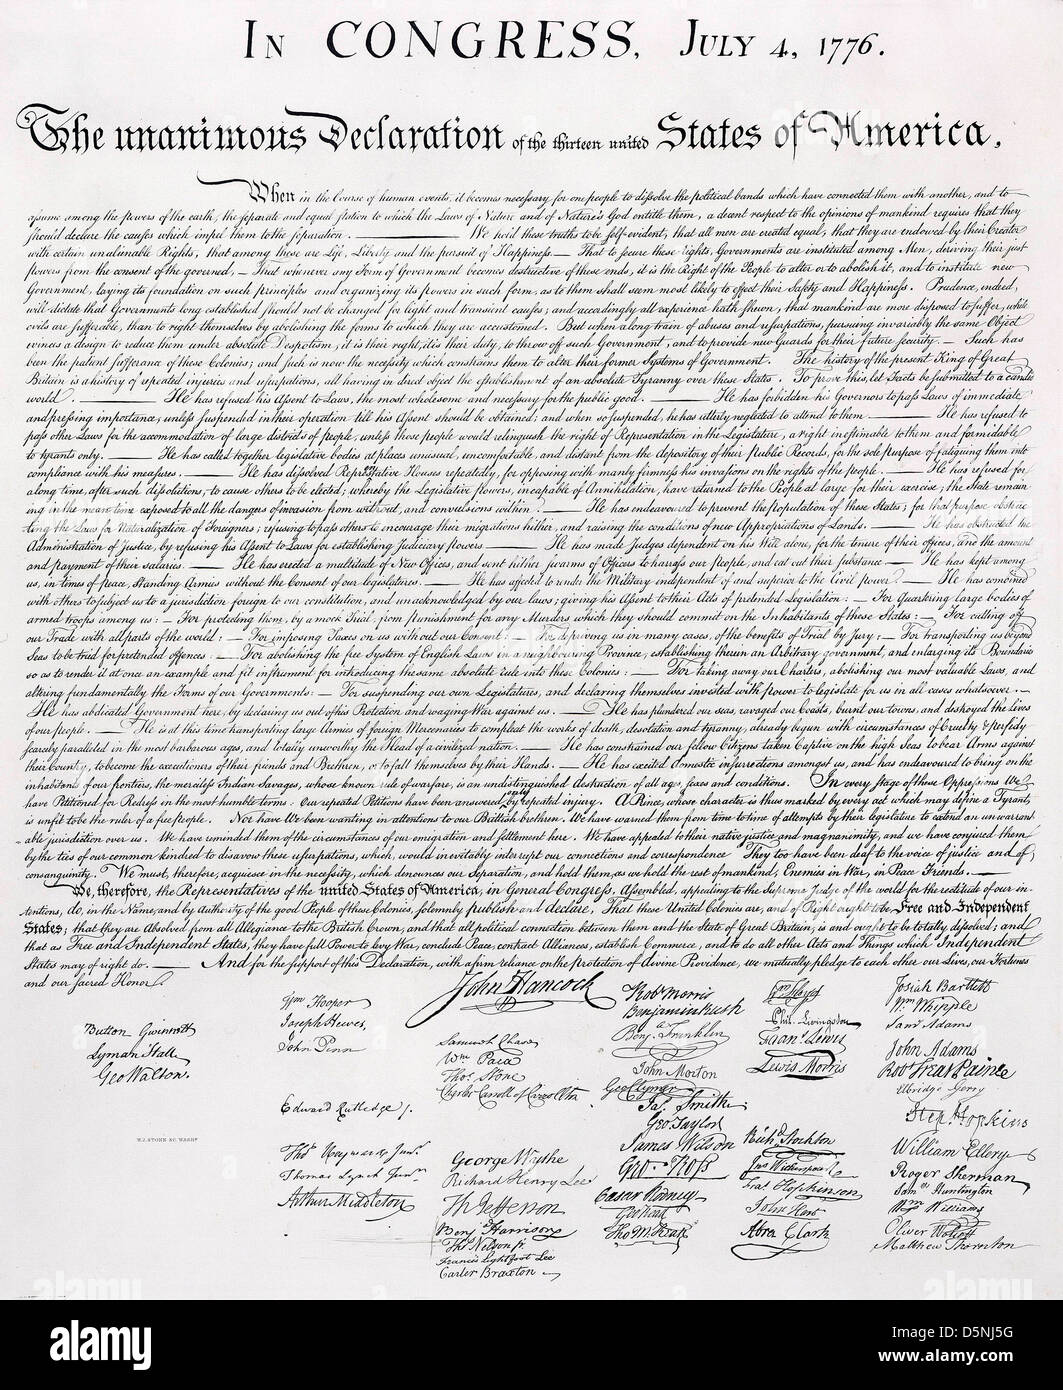 IN CONGRESS, JULY 4, 1776.
The unanimous Declaration of the thirteen united States of America,
When in the Course of human events, it becomes necessary for one people to dissolve the political bands which have connected them with another, and to
assume among the powers of the earth, the separate and equal station to which the Laws of Nature and of Nature's God entitle them, a decent respect to the opinions of mankind requires that they
should declare the causes which impel them to the separation. — We hold these truths to be self-evident, that all men are created equal, that they are endowed by their Creator
with certain unalienable Rights, that among these are Life, Liberty and the pursuit of Happiness. — That to secure these rights, Governments are instituted among Men, deriving their just
powers from the consent of the governed, — That whenever any Form of Government becomes destructive of these ends, it is the Right of the People to alter or to abolish it, and to institute new
Government, laying its foundation on such principles and organizing its powers in such form, as to them shall seem most likely to effect their Safety and Happiness. Prudence, indeed,
will dictate that Governments long established should not be changed for light and transient causes; and accordingly all experience hath shewn, that mankind are more disposed to suffer, while
evils are sufferable, than to right themselves by abolishing the forms to which they are accustomed. But when a long train of abuses and usurpations, pursuing invariably the same Object
evinces a design to reduce them under absolute Despotism, it is their right, it is their duty, to throw off such Government, and to provide new Guards for their future security. — Such has
been the patient sufferance of these Colonies; and such is now the necessity which constrains them to alter their former Systems of Government. The history of the present King of Great
Britain is a history of repeated injuries and usurpations, all having in direct object the establishment of an absolute Tyranny over these States. To prove this, let Facts be submitted to a candid
world. — He has refused his Assent to Laws, the most wholesome and necessary for the public good. — He has forbidden his Governors to pass Laws of immediate
and pressing importance, unless suspended in their operation till his Assent should be obtained; and when so suspended, he has utterly neglected to attend to them. — He has refused to
pass other Laws for the accommodation of large districts of people, unless those people would relinquish the right of Representation in the Legislature, a right inestimable to them and formidable
to tyrants only. — He has called together legislative bodies at places unusual, uncomfortable, and distant from the depository of their public Records, for the sole purpose of fatiguing them into
compliance with his measures. — He has dissolved Representative Houses repeatedly, for opposing with manly firmness his invasions on the rights of the people. — He has refused for
a long time, after such dissolutions, to cause others to be elected; whereby the Legislative powers, incapable of Annihilation, have returned to the People at large for their exercise; the State remain
ing in the mean time exposed to all the dangers of invasion from without, and convulsions within. — He has endeavoured to prevent the population of these States; for that purpose obstruc
ting the Laws for Naturalization of Foreigners; refusing to pass others to encourage their migrations hither, and raising the conditions of new Appropriations of Lands. — He has obstructed the
Administration of Justice, by refusing his Assent to Laws for establishing Judiciary powers. — He has made Judges dependent on his Will alone, for the tenure of their offices, and the amount
and payment of their salaries. — He has erected a multitude of New Offices, and sent hither swarms of Officers to harrass our people, and eat out their substance. — He has kept among
us, in times of peace, Standing Armies without the Consent of our legislatures. — He has affected to render the Military independent of and superior to the Civil power. — He has combined
with others to subject us to a jurisdiction foreign to our constitution, and unacknowledged by our laws; giving his Assent to their Acts of pretended Legislation: — For Quartering large bodies of
armed troops among us: — For protecting them, by a mock Trial, from punishment for any Murders which they should commit on the Inhabitants of these States: — For cutting off
our Trade with all parts of the world: — For imposing Taxes on us without our Consent: — For depriving us in many cases, of the benefits of Trial by Jury: — For transporting us beyond
Seas to be tried for pretended offences. — For abolishing the free System of English Laws in a neighbouring Province, establishing therein an Arbitrary government, and enlarging its Boundaries
so as to render it at once an example and fit instrument for introducing the same absolute rule into these Colonies: — For taking away our Charters, abolishing our most valuable Laws, and
altering fundamentally the Forms of our Governments: — For suspending our own Legislatures, and declaring themselves invested with power to legislate for us in all cases whatsoever. —
He has abdicated Government here, by declaring us out of his Protection and waging War against us. — He has plundered our seas, ravaged our Coasts, burnt our towns, and destroyed the Lives
of our people. — He is at this time transporting large Armies of foreign Mercenaries to compleat the works of death, desolation and tyranny, already begun with circumstances of Cruelty & perfidy
scarcely paralleled in the most barbarous ages, and totally unworthy the Head of a civilized nation. — He has constrained our fellow Citizens taken Captive on the high Seas to bear Arms against
their Country, to become the executioners of their friends and Brethren, or to fall themselves by their Hands. — He has excited domestic insurrections amongst us, and has endeavoured to bring on the
inhabitants of our frontiers, the merciless Indian Savages, whose known rule of warfare, is an undistinguished destruction of all ages, sexes and conditions. In every stage of these Oppressions We
have Petitioned for Redress in the most humble terms: Our repeated Petitions have been answered only by repeated injury. A Prince, whose character is thus marked by every act which may define a Tyrant,
is unfit to be the ruler of a free people. Nor have We been wanting in attentions to our Brittish brethren. We have warned them from time to time of attempts by their legislature to extend an unwarrant
able jurisdiction over us. We have reminded them of the circumstances of our emigration and settlement here. We have appealed to their native justice and magnanimity, and we have conjured them
by the ties of our common kindred to disavow these usurpations, which, would inevitably interrupt our connections and correspondence They too have been deaf to the voice of justice and of
consanguinity. We must, therefore, acquiesce in the necessity, which denounces our Separation, and hold them, as we hold the rest of mankind, Enemies in War, in Peace Friends. —
We, therefore, the Representatives of the united States of America, in General Congress, Assembled, appealing to the Supreme Judge of the world for the rectitude of our in
tentions, do, in the Name, and by Authority of the good People of these Colonies, solemnly publish and declare, That these United Colonies are, and of Right ought to be Free and Independent
States; that they are Absolved from all Allegiance to the British Crown, and that all political connection between them and the State of Great Britain, is and ought to be totally dissolved; and
that as Free and Independent States, they have full Power to levy War, conclude Peace, contract Alliances, establish Commerce, and to do all other Acts and Things which Independent
States may of right do. — And for the support of this Declaration, with a firm reliance on the protection of divine Providence, we mutually pledge to each other our Lives, our Fortunes
and our sacred Honor.
Button Gwinnett
Lyman Hall
Geo Walton.
W.J. STONE SC. WASHN.
Wm Hooper
Joseph Hewes,
John Penn
Edward Rutledge /.
Thos Heyward Junr.
Thomas Lynch Junr.
Arthur Middleton
John Hancock
Samuel Chase
Wm. Paca
Thos. Stone
Charles Carroll of Carrollton
George Wythe
Richard Henry Lee
Th Jefferson
Benja Harrison
Thos Nelson jr.
Francis Lightfoot Lee
Carter Braxton
Robt Morris
Benjamin Rush
Benja. Franklin
John Morton
Geo Clymer
Jas. Smith
Geo. Taylor
James Wilson
Geo. Ross
Caesar Rodney
Geo Read
Tho M:Kean
Wm Floyd
Phil. Livingston
Frans. Lewis
Lewis Morris
Richd. Stockton
Jno Witherspoon
Fras. Hopkinson
John Hart
Abra Clark
Josiah Bartlett
Wm. Whipple
Saml Adams
John Adams
Robt Treat Paine
Elbridge Gerry
Step. Hopkins
William Ellery
Roger Sherman
Saml Huntington
Wm Williams
Oliver Wolcott
Matthew Thornton
alamy
alamy
Image ID: D5NJ5G
www.alamy.com